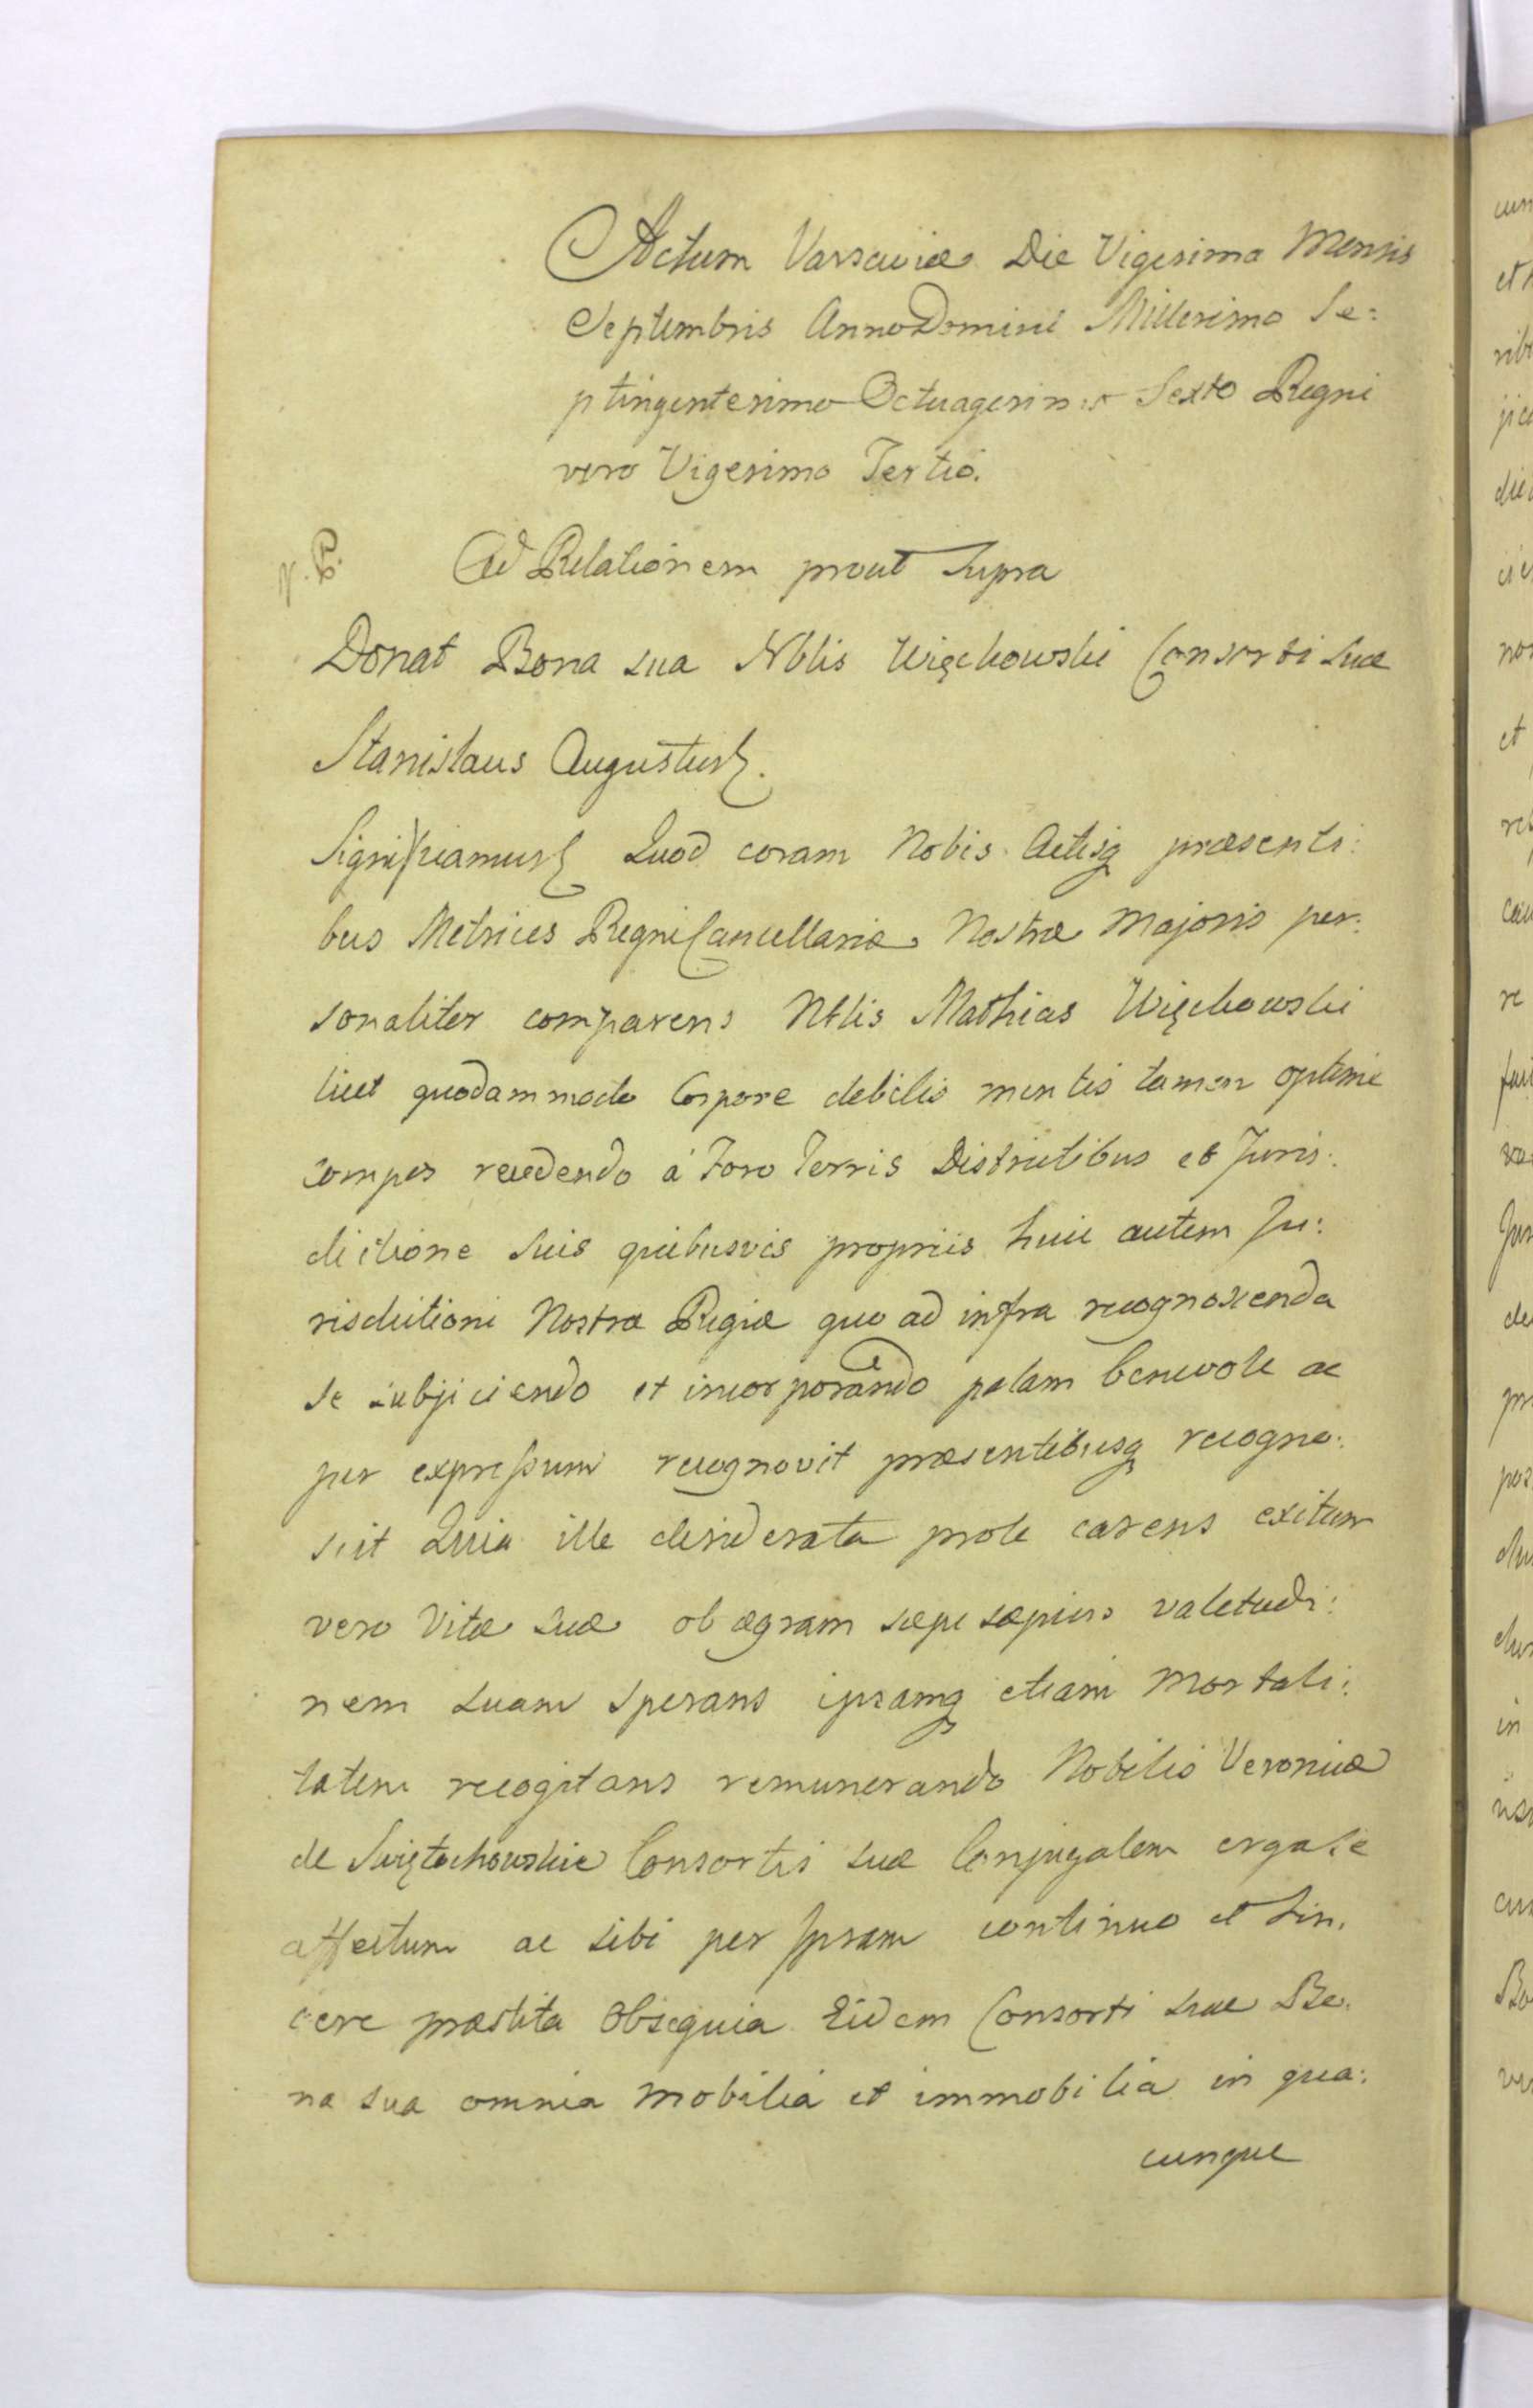 Actum Varsaviæ Die Vigesima Mensis
Septembris Anno Domini Millesimo Se:
ptingentesimo Octuagesimo Sexto Regni
vero Vigesimo Tertio.
Ad Relationem prout Supra
Donat Bona sua Nblis Więckowski Consorti suæ
Stanislaus Augustus
Significamus Quod coram Nobis Actisq præsenti:
bus Metrices Regni Cancellariæ Nostræ Majoris per:
sonaliter comparens Nblis Mathias Więckowski
licet quodammodo Corpore debilis mentis tamen optime
compos recedendo á Foro Terris Districtibus et Juris:
dictione suis quibusvis propriis huic autem Ju:
risdictioni Nostræ Regiæ quo ad infra recognoscenda
se subjiciendo et incorporando palam benevole ac
per expressum recognovit præsentibusq recogno:
scit Quia ille desiderata prole carens exitum
vero Vitæ suæ ob ægram sæpe sæpius valetudi:
nem suam sperans ipsamq etiam Mortali:
tatem recogitans remunerando Nobilis Veronicæ
de Swiętochowskie Consortis suæ Conjugalem erga se
affectum ac sibi per Ipsam continuo et sin:
cere præstita Obsequia Eidem Consorti suæ Bo:
na sua omnia Mobilia et immobilia in qua:
cunque